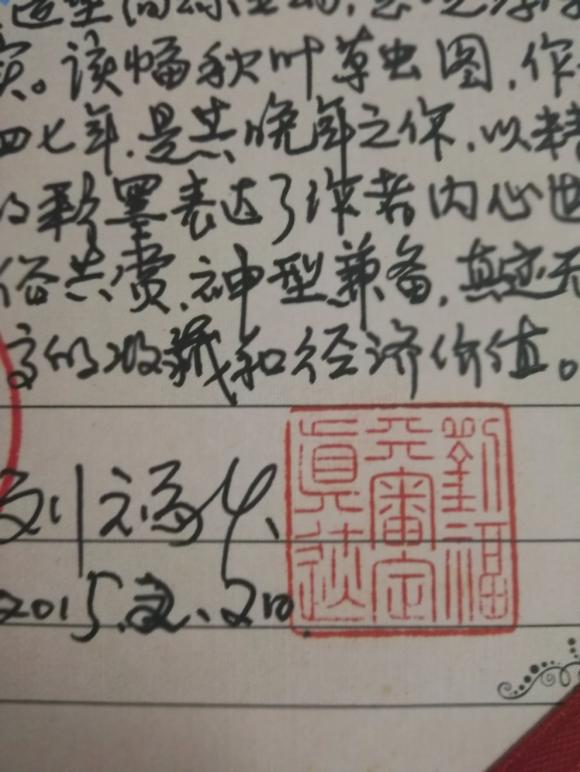 造型
宾。该幅秋叶草虫图，作
四七年，是其晚年之作，以精
的彩墨表达了作者内心世
俗共赏，神型兼备，真迹无
高的收藏和经济价值。
刘福
2015.
劉福
審定
真迹